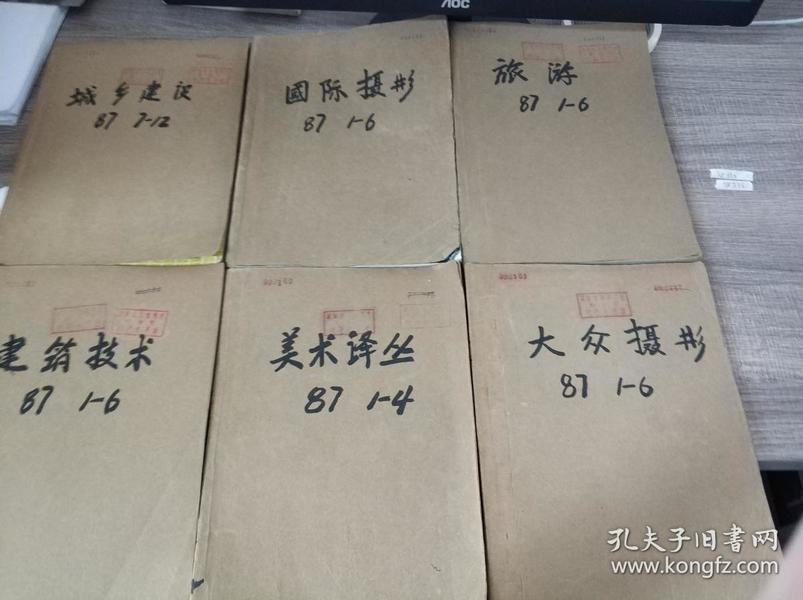 AOC
城乡建设
87 7-12
國际摄影
87 1-6
旅游
87 1-6
建筑技术
87 1-6
美术译丛
87 1-4
大众摄影
87 1-6
孔夫子旧书网
www.kongfz.com